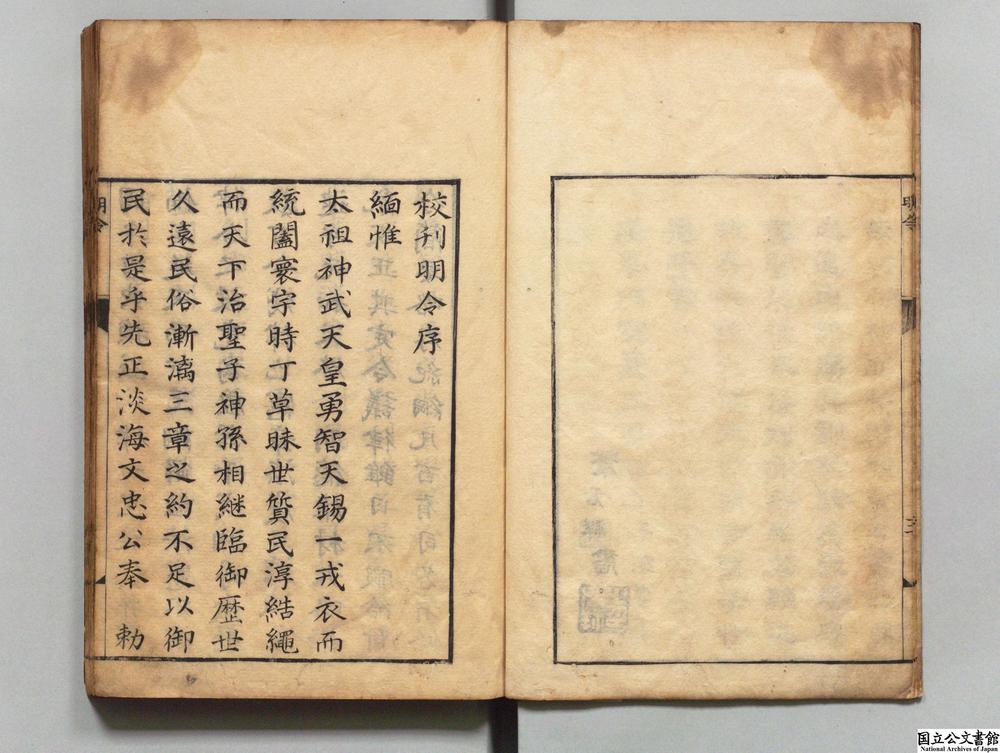 校刊明令序
緬惟
太祖神武天皇勇智天錫一戎衣而
統闔寰宇時丁草昧世質民淳結繩
而天下治聖子神孫相継臨御歴世
久遠民俗漸漓三章之約不足以御
民於是乎先正淡海文忠公奉 勅
明令
明令
国立公文書館
National Archives of Japan